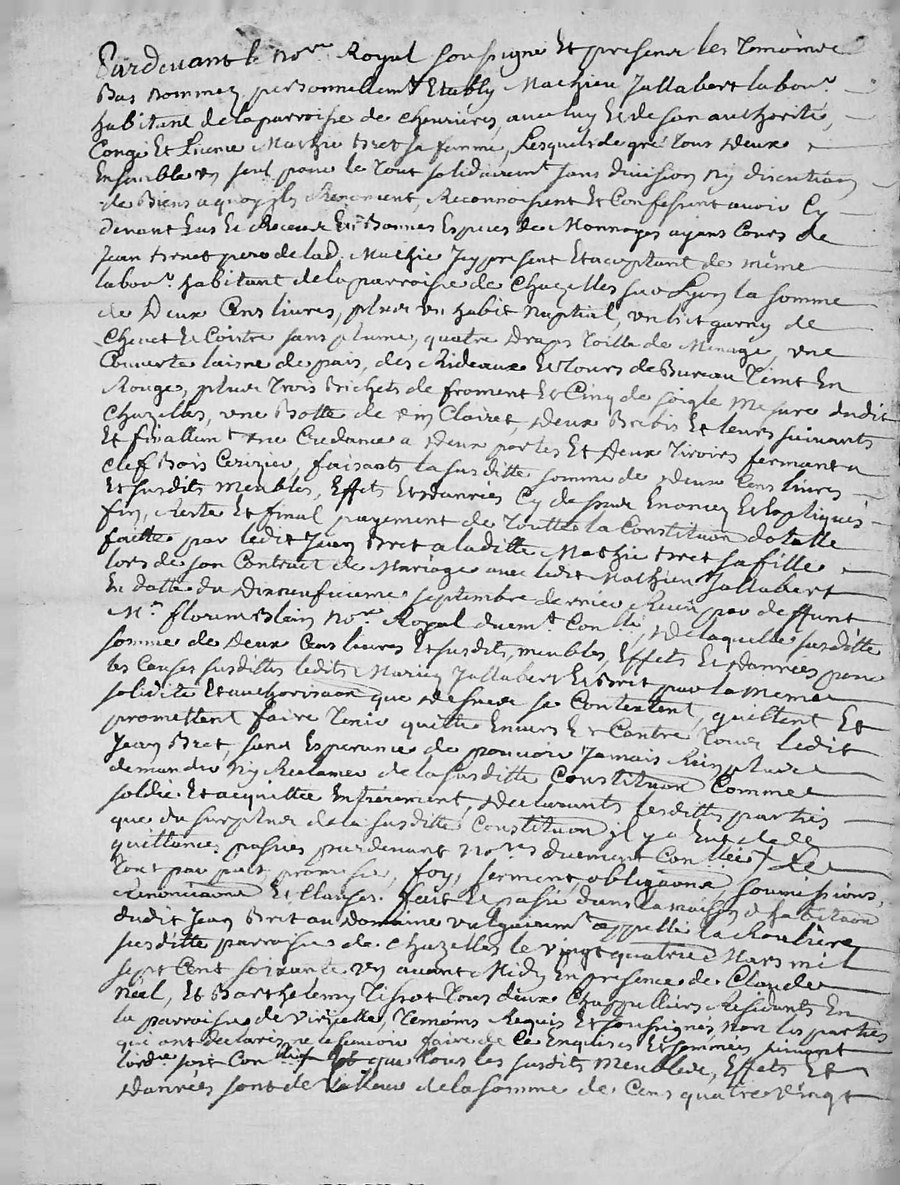 Pardevant le No.re Royal soussigné Et presence les Temoins
Bas nommez personnellem.t Etably Mathieu Jallabert labou.r
habitant de la parroisse de chevrieres, avec luy Et de son authorité,
Congé Et Licence Mathie Bret sa femme, Lesquels de gré Tous deux
Ensemble un seul pour le Tout solidairem.t sans division ny discution
de Biens a quoy ils Renoncent, Reconnoissent Et Confessent avoir Cy
devant Eus Et Receus En Bonnes Especes de Monnoyes ayant Cours de
Jean Bret pere de lad. Mathie Icy present Et acceptant de même
labou.r habitant de la parroisse de Chazelles sur Lyon la somme
de Deux Cens livres, plus un habit Nuptial, un lict garny de
Chevet Et Coitre sans plume, quatre Draps Toille de Menage, une
Couverte laisne de païs, des Rideaux Et Tours de Bureau Teint En
Rouge, plus Trois Bichets de froment Et Cinq de soigle Mesure dudit
Chazelles, une Botte de vin Clairet, deux Brebis Et leurs suivants
Et finallem.t une Credance a deux portes Et Deux Tiroirs fermant a
Clef Bois Cerizier, faisants la susditte somme de Deux Cens livres
Et susdits Meubles, Effets Et danrées Cy dessus Enoncez Et Expliqués
fin, Reste Et final payement de Toutte la Constitution dotalle
faitte par ledit Jean Bret a laditte Mathie Bret sa fille
lors de son Contract de Mariage avec ledit Mathieu Jallabert
En datte du Dixneufieme septembre dernier Receu par deffunt
M.e No.re Royal duem.t Con.llé, De laquelle susditte
somme de Deux Cens livres Et susdits meubles, Effets Et Danrées pour
les Causes susdittes lesdits Mariez Jallabert Et Bret par la Meme
solidité Et authorisaon que dessus se Contentent, quittent Et
promettent faire Tenir quitte Envers Et Contre Tous ledit
Jean Bret, sans Esperance de pouvoir Jamais Rien plus
demander Ny Reclamer de la susditte Constitution Comme
soldée Et acquittée Entierement, Declarants lesdittes parties
que du surplus de la susditte Constitution il y a Eut
quittances passées pardevant No.res duement Con.llées
Tout par pact, promesse, foy, serment, obligaons, soumissions,
Renonciaons Et Clauses. fait Et passé dans la maison d'habitaon
dudit Jean Bret au Domaine vulgairem.t appellé la Roulière
susditte parroisse de Chazelles le vingt quatre Mars mil
sept Cent soixante un avant Midy En presence de Claude
Néel, Et Barthelemy Tissot Tous deux Chappelliers Residents En
la parroisse de Viricelle, Temoins Requis Et soussignés non les parties
qui ont declarés ne le scavoir faire de Ce Enquises Et sommées suivant
lord.ce que Tous les susdits Meubles, Effets Et
Danrées sont de Valleur de la somme de Cens quatre vingt